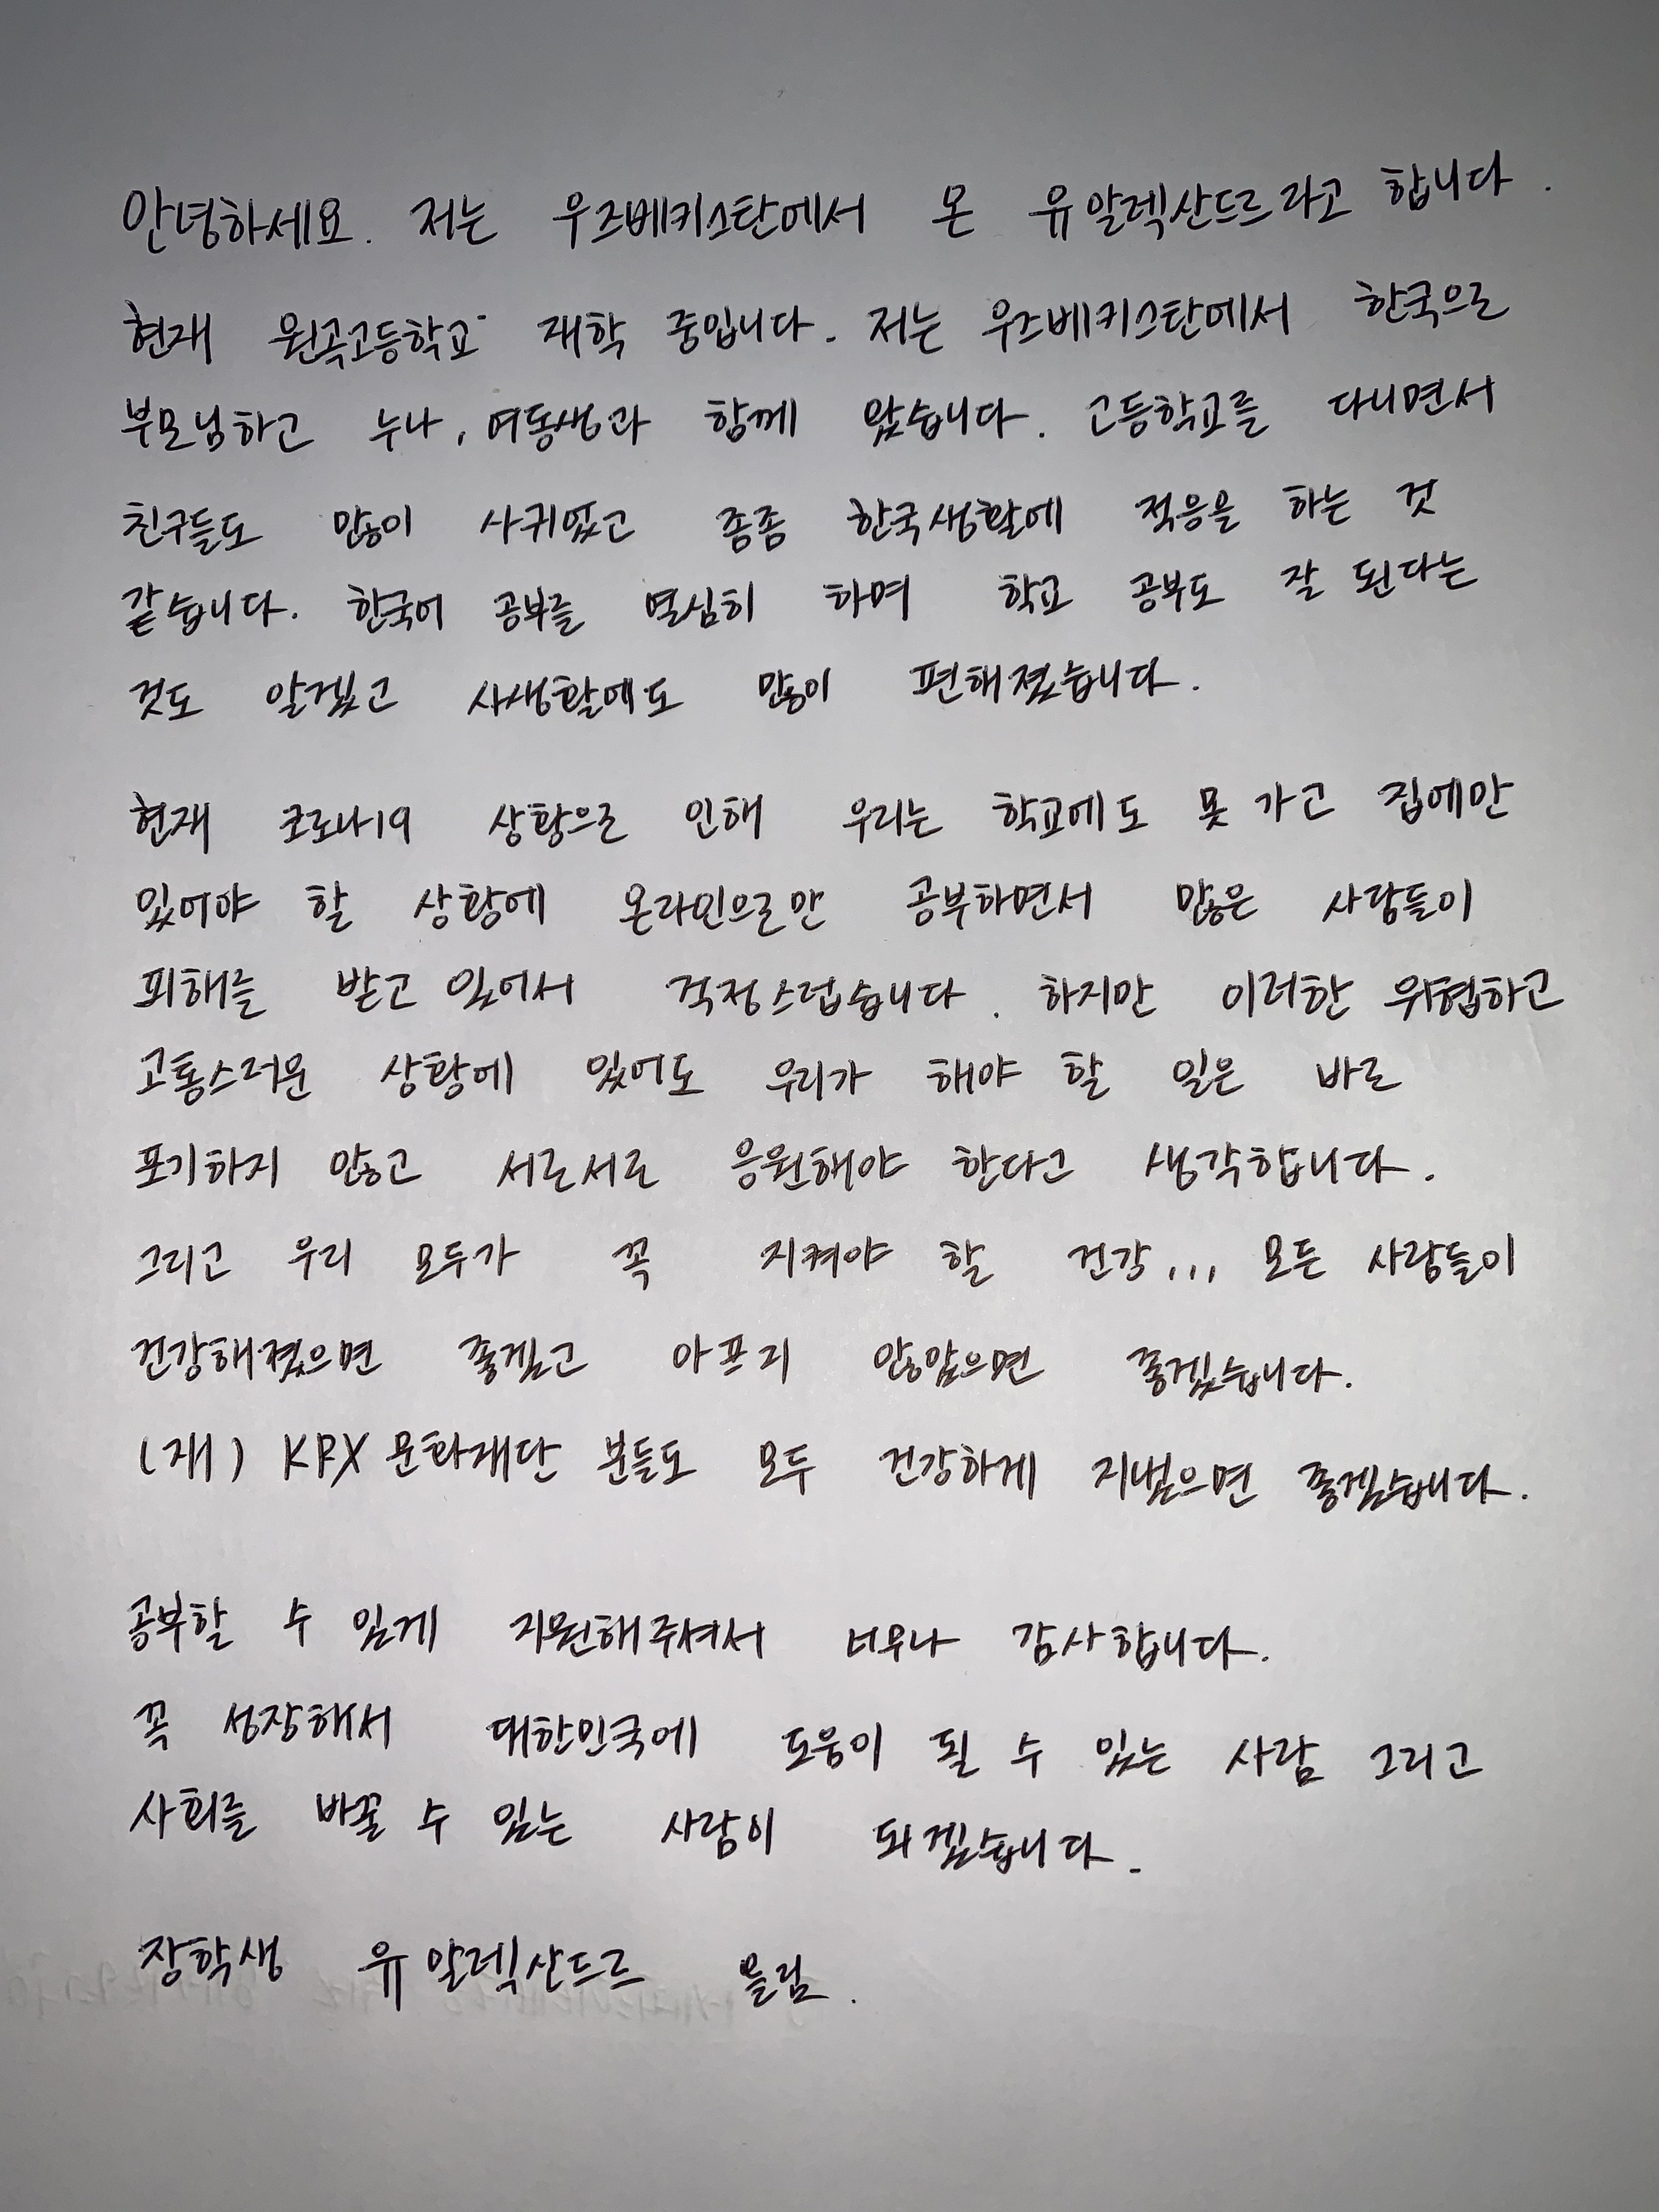 안녕하세요. 저는 우즈베키스탄에서 온 유알렉산드르라고 합니다.
현재 원곡고등학교 재학 중입니다. 저는 우즈베키스탄에서 한국으로
부모님하고 누나, 여동생과 함께 왔습니다. 고등학교를 다니면서
친구들도 많이 사귀었고 좀좀 한국생활에 적응을 하는 것
같습니다. 한국어 공부를 열심히 하며 학교 공부도 잘 된다는
것도 알겠고 사생활에도 많이 편해졌습니다.
현재 코로나19 상황으로 인해 우리는 학교에도 못 가고 집에만
있어야 할 상황에 온라인으로만 공부하면서 많은 사람들이
피해를 받고 있어서 걱정스럽습니다. 하지만 이러한 위협하고
고통스러운 상황에 있어도 우리가 해야 할 일은 바로
포기하지 않고 서로서로 응원해야 한다고 생각합니다.
그리고 우리 모두가 꼭 지켜야 할 건강... 모든 사람들이
건강해졌으면 좋겠고 아프지 않았으면 좋겠습니다.
(재) KRX 문화재단 분들도 모두 건강하게 지냈으면 좋겠습니다.
공부할 수 있게 지원해주셔서 너무나 감사합니다.
꼭 성장해서 대한민국에 도움이 될 수 있는 사람 그리고
사회를 바꿀 수 있는 사람이 되겠습니다.
장학생 유알렉산드르 올림.